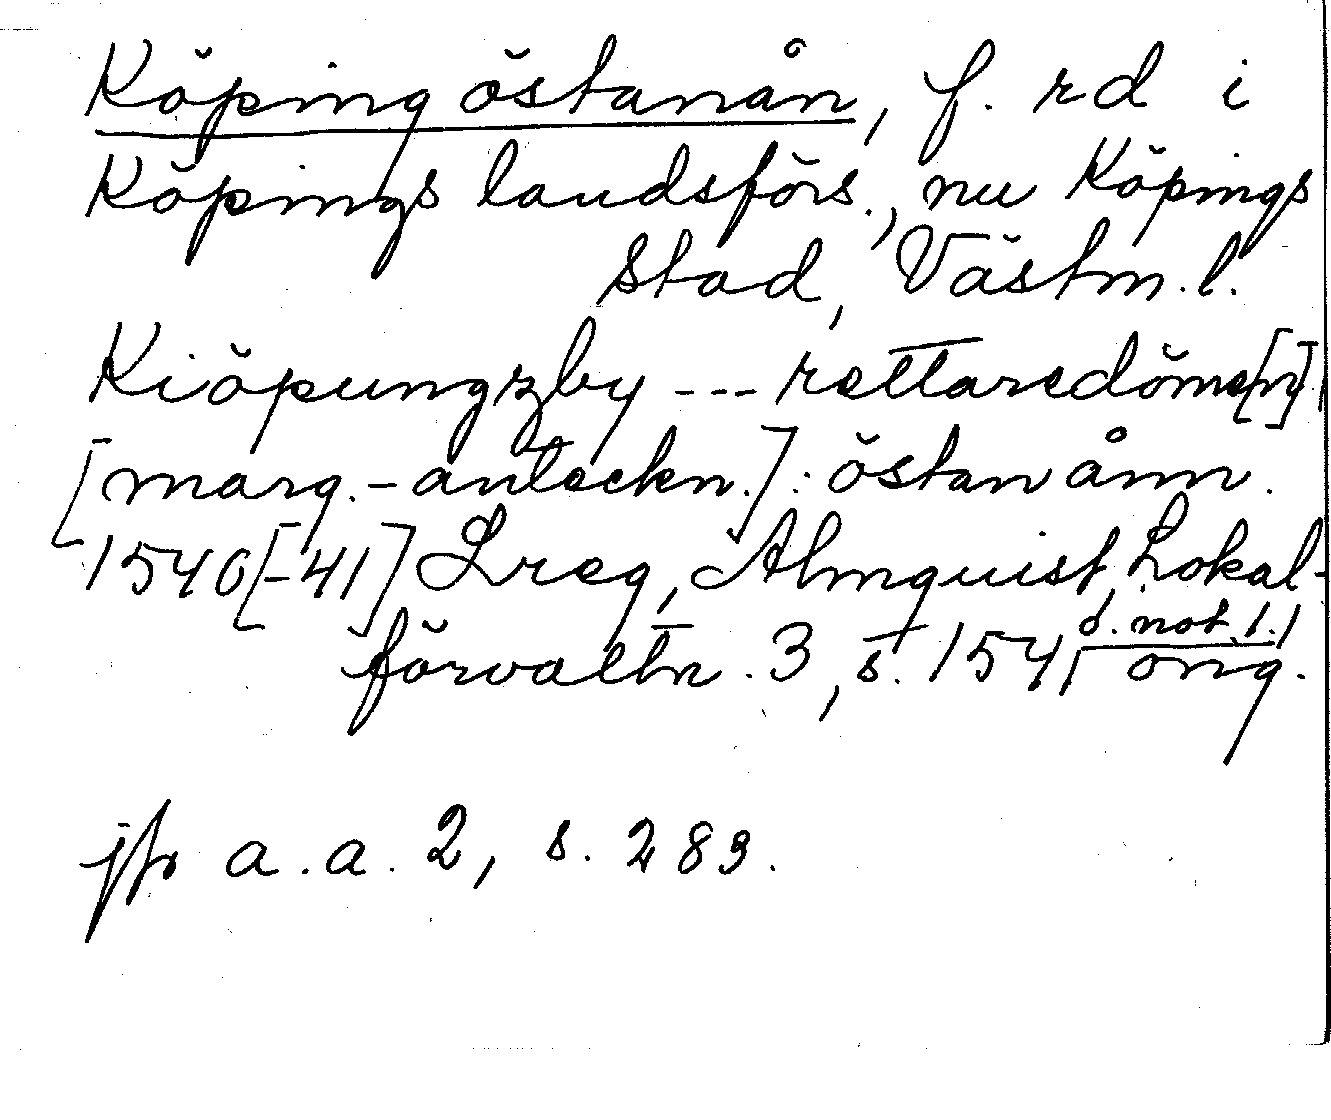 Köping östanån, f. rd i
Köpings landsförs., nu Köpings
stad, Västm. l.
Kiöpungzby --- rettaredöme[n]
[marg.-anteckn.]: östan ånn.
1540[-41] Lreg, Almquist, Lokal-
förvaltn. 3, s. 154, o. not. 1. | orig.
jfr a.a. 2, s. 283.